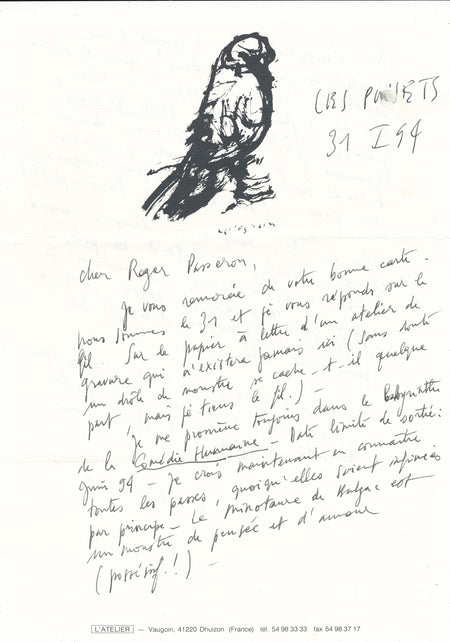 LES POISETS
31 I 94
cher Roger Passeron,
Je vous remercie de votre bonne carte.
nous sommes le 31 et je vous réponds sur le
fil. Sur le papier à lettre d'un atelier de
gravure qui n'existera jamais ici (sans doute
un drôle de monstre se cache-t-il quelque
part, mais je tiens le fil.) -
Je me promène toujours dans le labyrinthe
de la Comédie Humaine - Date limite de sortie:
Juin 94 - Je crois maintenant en connaître
toutes les passes, quoiqu'elles soient infinies
par principe - Le minotaure de Balzac est
un monstre de pensée et d'amour
(possessif!!) -
L'ATELIER — Vaugoin, 41220 Dhuizon (France) tél. 54 98 33 33 fax 54 98 37 17